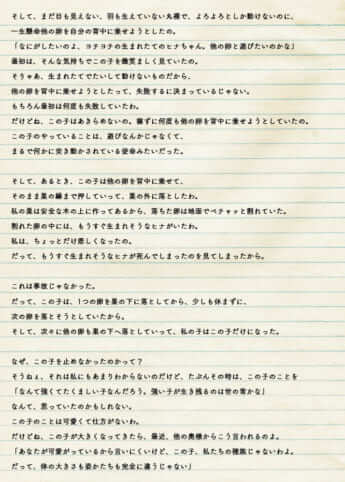 そして、まだ目も見えない、羽も生えていない丸裸で、よろよろとしか動けないのに、
一生懸命他の卵を自分の背中に乗せようとしたの。
「なにがしたいのよ、ヨチヨチの生まれたてのヒナちゃん。他の卵と遊びたいのかな」
最初は、そんな気持ちでこの子を微笑ましく見ていたの。
そりゃあ、生まれたてでたいして動けないものだから、
他の卵を背中に乗せようとしたって、失敗するに決まっているじゃない。
もちろん最初は何度も失敗していたわ。
だけどね、この子はあきらめないの。懲ずに何度も他の卵を背中に乗せようとしていたの。
この子のやっていることは、遊びなんかじゃなくて、
まるで何かに突き動かされている使命みたいだった。
そして、あるとき、この子は他の卵を背中に乗せて、
そのまま巣の縁まで押していって、巣の外に落としたわ。
私の巣は安全な木の上に作ってあるから、落ちた卵は地面でペチャッと割れていた。
割れた卵の中には、もうすぐ生まれそうなヒナがいたわ。
私は、ちょっとだけ悲しくなったの。
だって、もうすぐ生まれそうなヒナが死んでしまったのを見てしまったから。
これは事故じゃなかった。
だって、この子は、1つの卵を巣の下に落としてから、少しも休まずに、
次の卵を落とそうとしていたから。
そして、次々に他の卵も巣の下へ落としていって、私の子はこの子だけになった。
なぜ、この子を止めなかったのかって？
そうねぇ、それは私にもあまりわからないのだけど、たぶんその時は、この子のことを
「なんて強くてたくましい子なんだろう。強い子が生き残るのは世の常かな」
なんて、思っていたのかもしれない。
この子のことは可愛くて仕方がないわ。
だけどね、この子が大きくなってきたら、最近、他の奥様からこう言われるのよ。
「あなたが可愛がっているから言いにくいけど、この子、私たちの種族じゃないわよ。
だって、体の大きさも姿かたちも完全に違うじゃない」